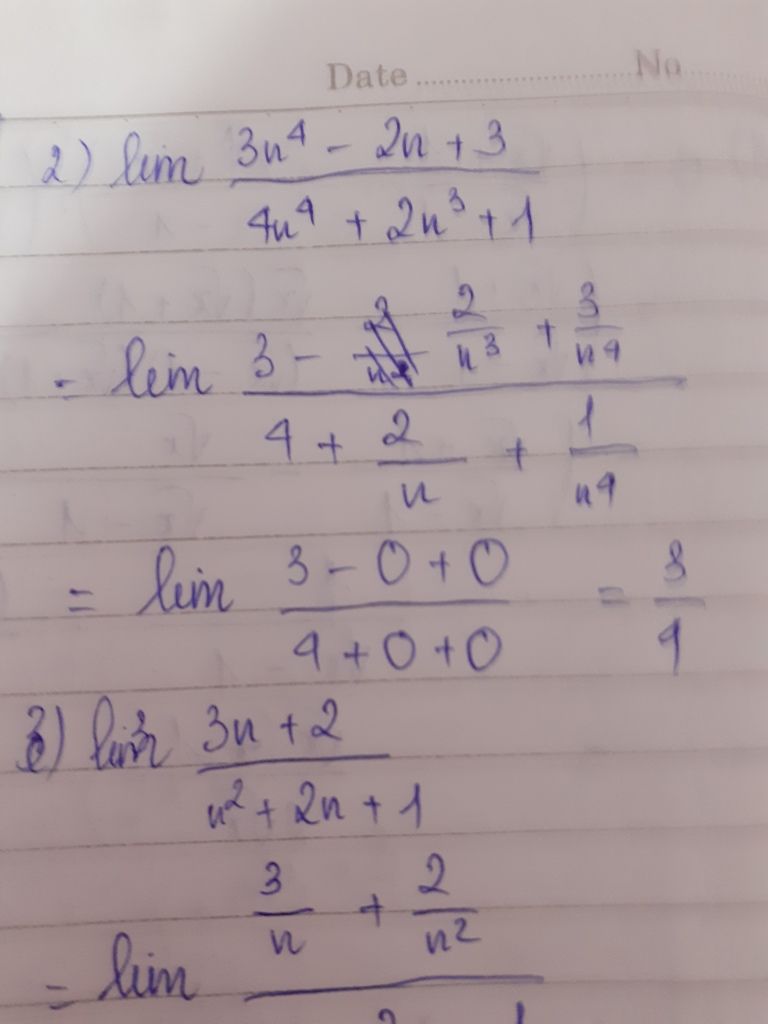 Date ........................ No
2) lim (3n⁴ - 2n + 3) / (4n⁴ + 2n³ + 1)
= lim (3 - 2/n³ + 3/n⁴) / (4 + 2/n + 1/n⁴)
= lim (3 - 0 + 0) / (4 + 0 + 0) = 3/4
3) lim (3n + 2) / (n² + 2n + 1)
= lim (3/n + 2/n²) /